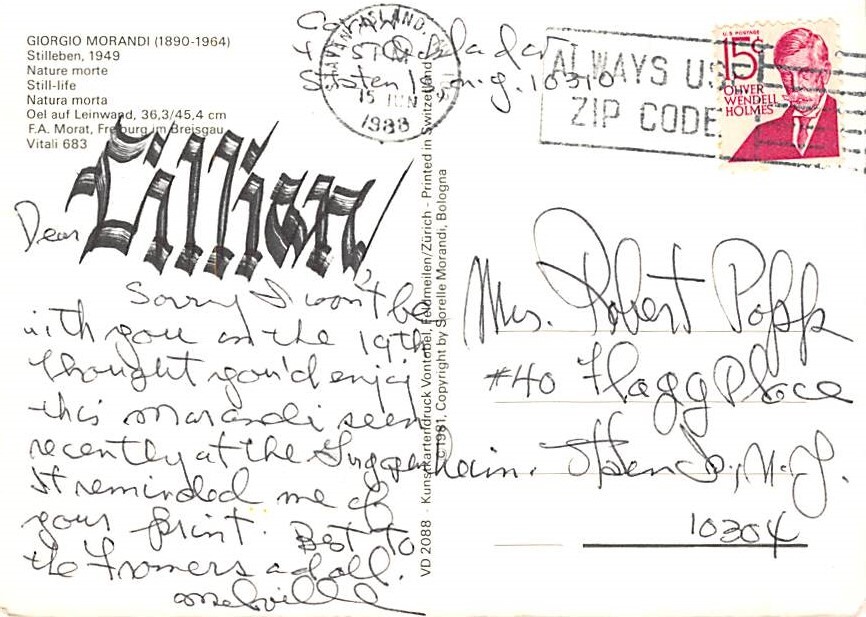 GIORGIO MORANDI (1890-1964)
Stilleben, 1949
Nature morte
Still-life
Natura morta
Oel auf Leinwand, 36,3/45,4 cm
F.A. Morat, Freiburg im Breisgau
Vitali 683
10310
ISLAND, N
15 JUN
1988
ALWAYS USE
ZIP CODE
U.S. POSTAGE
15¢
OLIVER
WENDELL
HOLMES
Dear Lillian,
Sorry I won't be
with you on the 19th
thought you'd enjoy
this Morandi seen
recently at the Guggenheim.
It reminded me of
your print. Best to
the Fromers and all.
Melville
VD 2088 - Kunstkartendruck Vontobel, Feldmeilen/Zürich - Printed in Switzerland
© 1981, Copyright by Sorelle Morandi, Bologna
Mrs. Robert Popp
#40 Flagg Place
N.Y.
10304